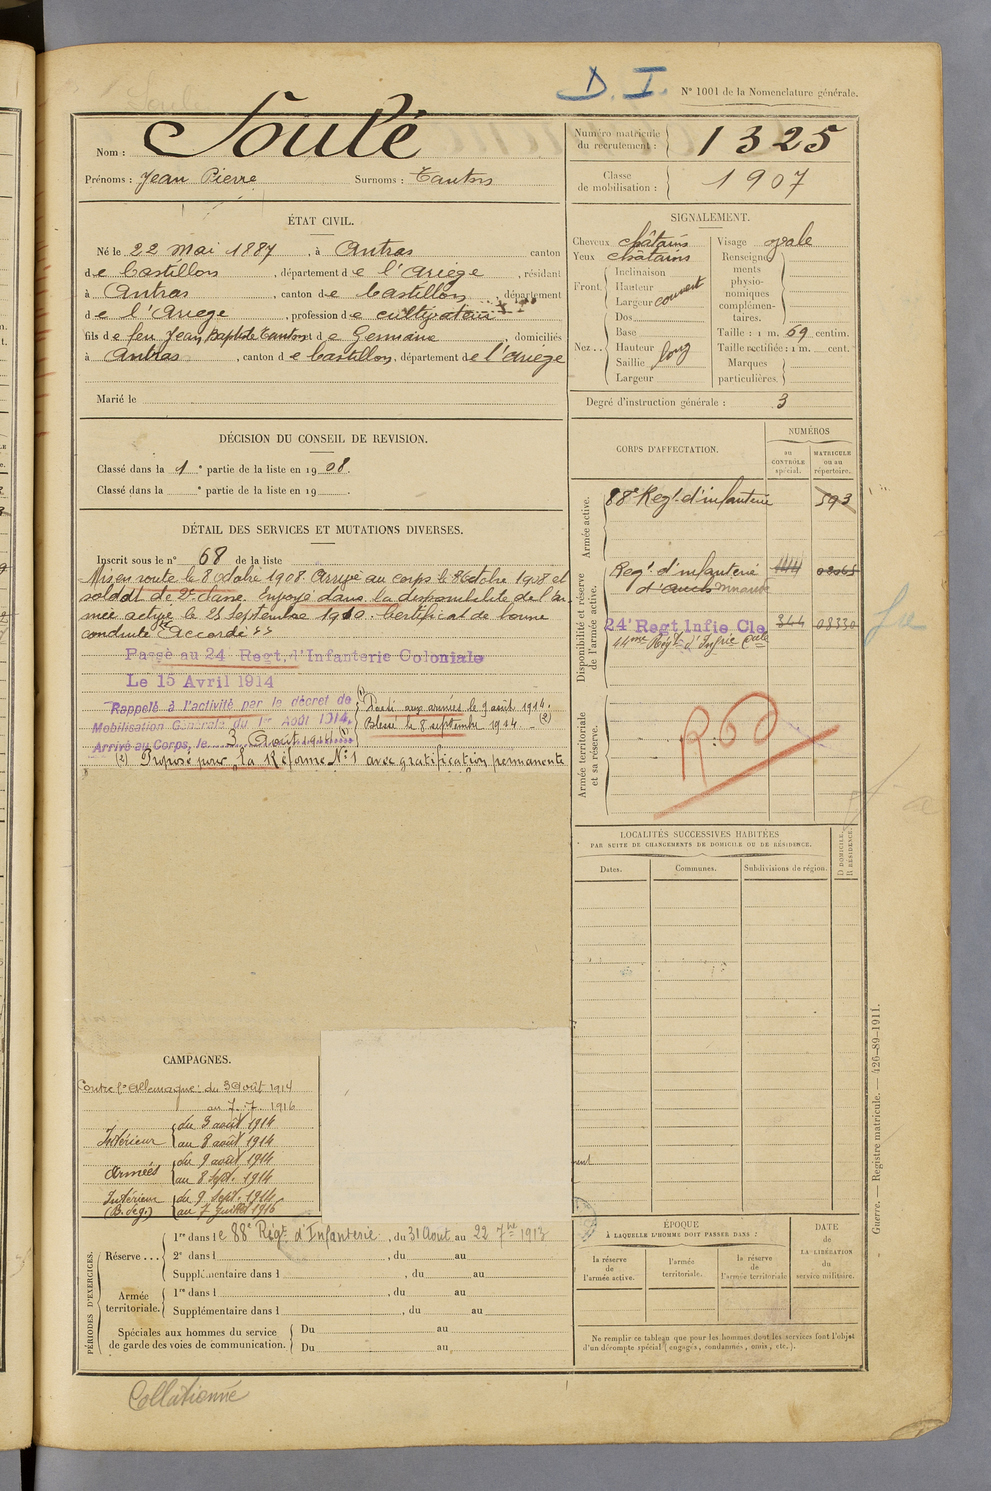 D. I.
N° 1001 de la Nomenclature générale.
Nom : Soulé
Prénoms : Jean Pierre Surnoms : Tantos
Numéro matricule du recrutement : 1325
Classe de mobilisation : 1907
ÉTAT CIVIL.
Né le 22 mai 1887, à Antras canton
de Castillon, département de l'Ariège, résidant
à Antras, canton de Castillon, département
de l'Ariège, profession de cultivateur
fils de feu Jean Baptiste Tantos et de Germaine, domiciliés
à Antras, canton de Castillon, département de l'Ariège
Marié le
SIGNALEMENT.
Cheveux châtains
Yeux châtains
Front. Inclinaison
Hauteur
Largeur couvert
Nez. Dos
Base
Hauteur
Saillie long
Largeur
Visage ovale
Renseignements physionomiques complémentaires.
Taille : 1 m. 69 centim.
Taille rectifiée : 1 m. cent.
Marques particulières.
Degré d'instruction générale : 3
DÉCISION DU CONSEIL DE REVISION.
Classé dans la 1re partie de la liste en 1908.
Classé dans la e partie de la liste en 19 .
DÉTAIL DES SERVICES ET MUTATIONS DIVERSES.
Inscrit sous le n° 68 de la liste
Mis en route le 8 octobre 1908. Arrivé au corps le 8 octobre 1908 et
soldat de 2e classe. Envoyé dans la disponibilité de l'ar-
mée active le 25 septembre 1910. Certificat de bonne
conduite Accordé
Passé au 24 Regt. d'Infanterie Coloniale
Le 15 Avril 1914
Rappelé à l'activité par le décret de
Mobilisation Générale du 1er Août 1914.
Arrivé au Corps, le 3 Août 1914 (1)
(1) Parti aux armées le 9 août 1914.
Blessé le 8 septembre 1914. (2)
(2) Proposé pour la Réforme N° 1 avec gratification permanente
CORPS D'AFFECTATION.
NUMÉROS
au CONTRÔLE spécial.
MATRICULE ou au répertoire.
Armée active.
88e Regt. d'infanterie 593
Disponibilité et réserve de l'armée active.
Regt. d'infanterie
d'Auch
24e Regt Infie Cle 344 08330
44me Régt d'Infrie Cale
Armée territoriale et sa réserve.
LOCALITÉS SUCCESSIVES HABITÉES
PAR SUITE DE CHANGEMENTS DE DOMICILE OU DE RÉSIDENCE.
Dates. Communes. Subdivisions de région. D DOMICILE. R RÉSIDENCE.
CAMPAGNES.
Contre l'Allemagne : du 3 Août 1914
au 7.7. 1916
Intérieur du 3 août 1914
au 8 août 1914
Armées du 9 août 1914
au 8 Sept. 1914
Intérieur du 9 Sept. 1914
(B. de g.) au 7 Juillet 1916
PÉRIODES D'EXERCICES.
Réserve... 1re dans le 88e Régt. d'Infanterie, du 31 Aout au 22 7bre 1913
2e dans l , du au
Supplémentaire dans l , du au
Armée territoriale. 1re dans l , du au
Supplémentaire dans l , du au
Spéciales aux hommes du service de garde des voies de communication. Du au
Du au
ÉPOQUE
À LAQUELLE L'HOMME DOIT PASSER DANS :
la réserve de l'armée active.
l'armée territoriale.
la réserve de l'armée territoriale
DATE de LA LIBÉRATION du service militaire.
Ne remplir ce tableau que pour les hommes dont les services font l'objet
d'un décompte spécial (engagés, condamnés, omis, etc.).
Guerre. — Registre matricule. — 426-89-1911.
Collationné